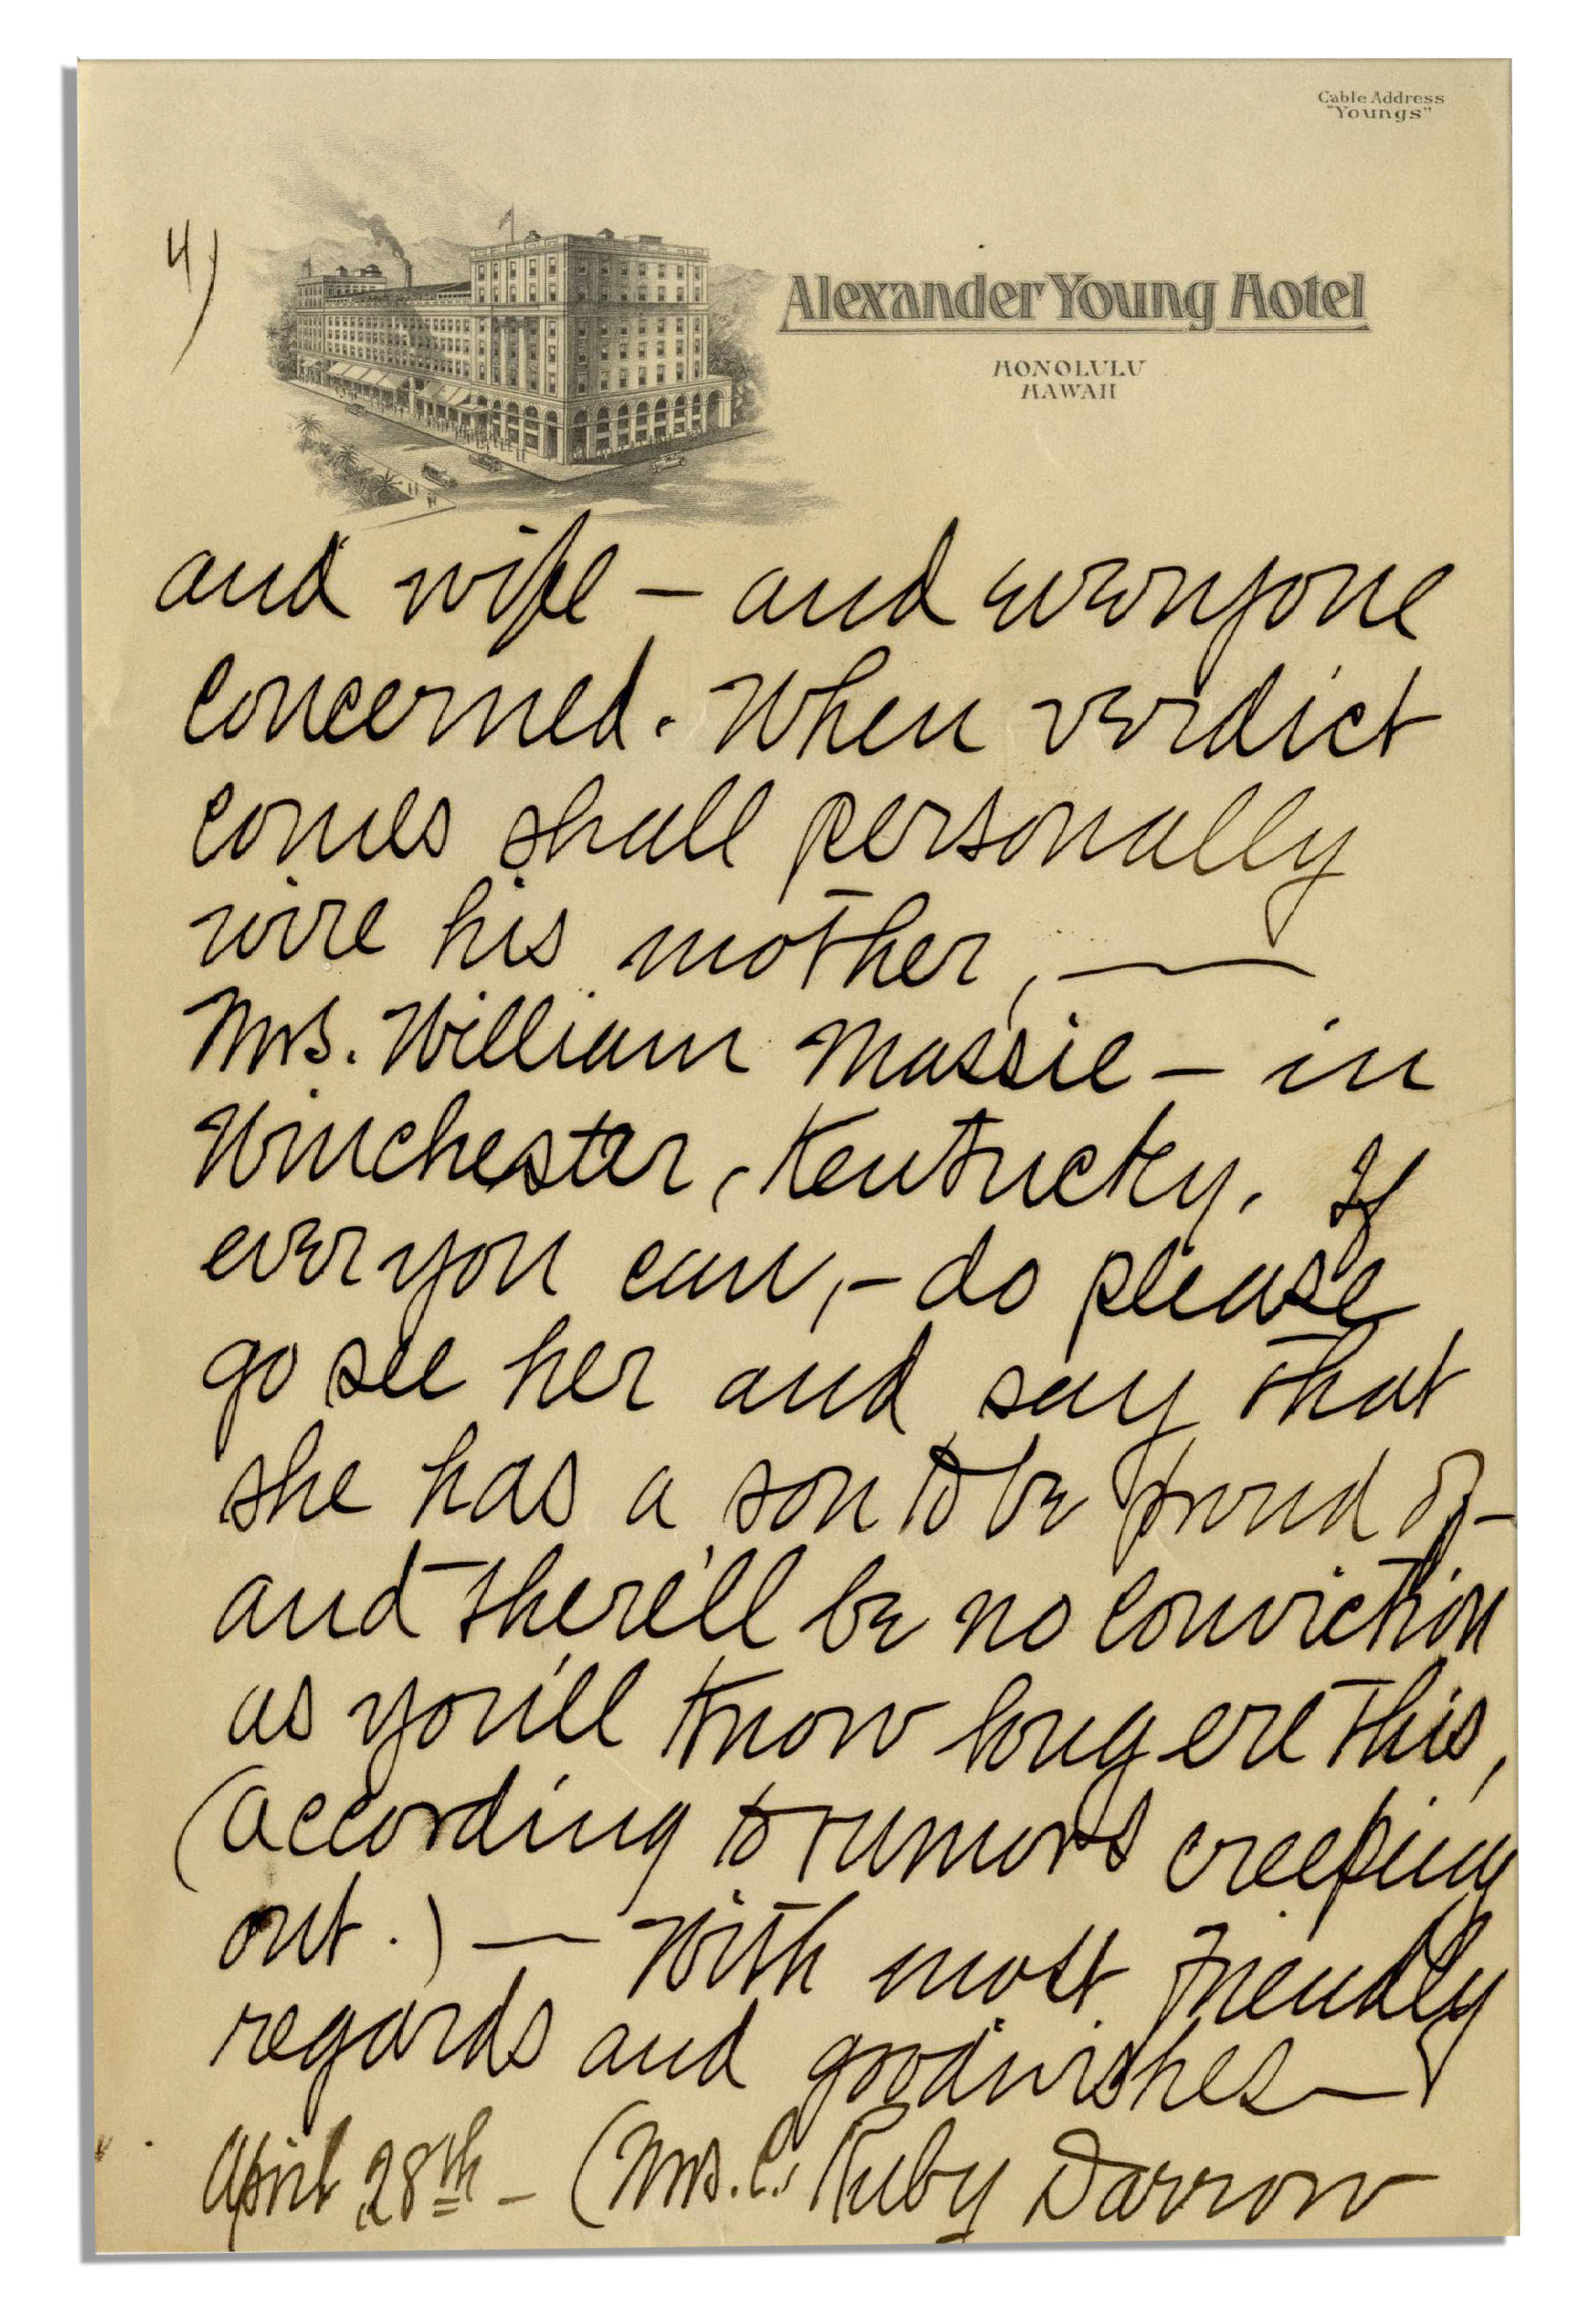 Cable Address
"Youngs"
4)
Alexander Young Hotel
HONOLULU
HAWAII
and wife — and everyone
concerned. When verdict
comes shall personally
wire his mother, —
Mrs. William Massie — in
Winchester, Kentucky. If
ever you can, — do please
go see her and say that
she has a son to be proud of —
and there'll be no conviction
as you'll know long ere this,
(according to rumors creeping
out.) — With most friendly
regards and goodwishes —
April 28th — (Mrs. C. Ruby Darrow